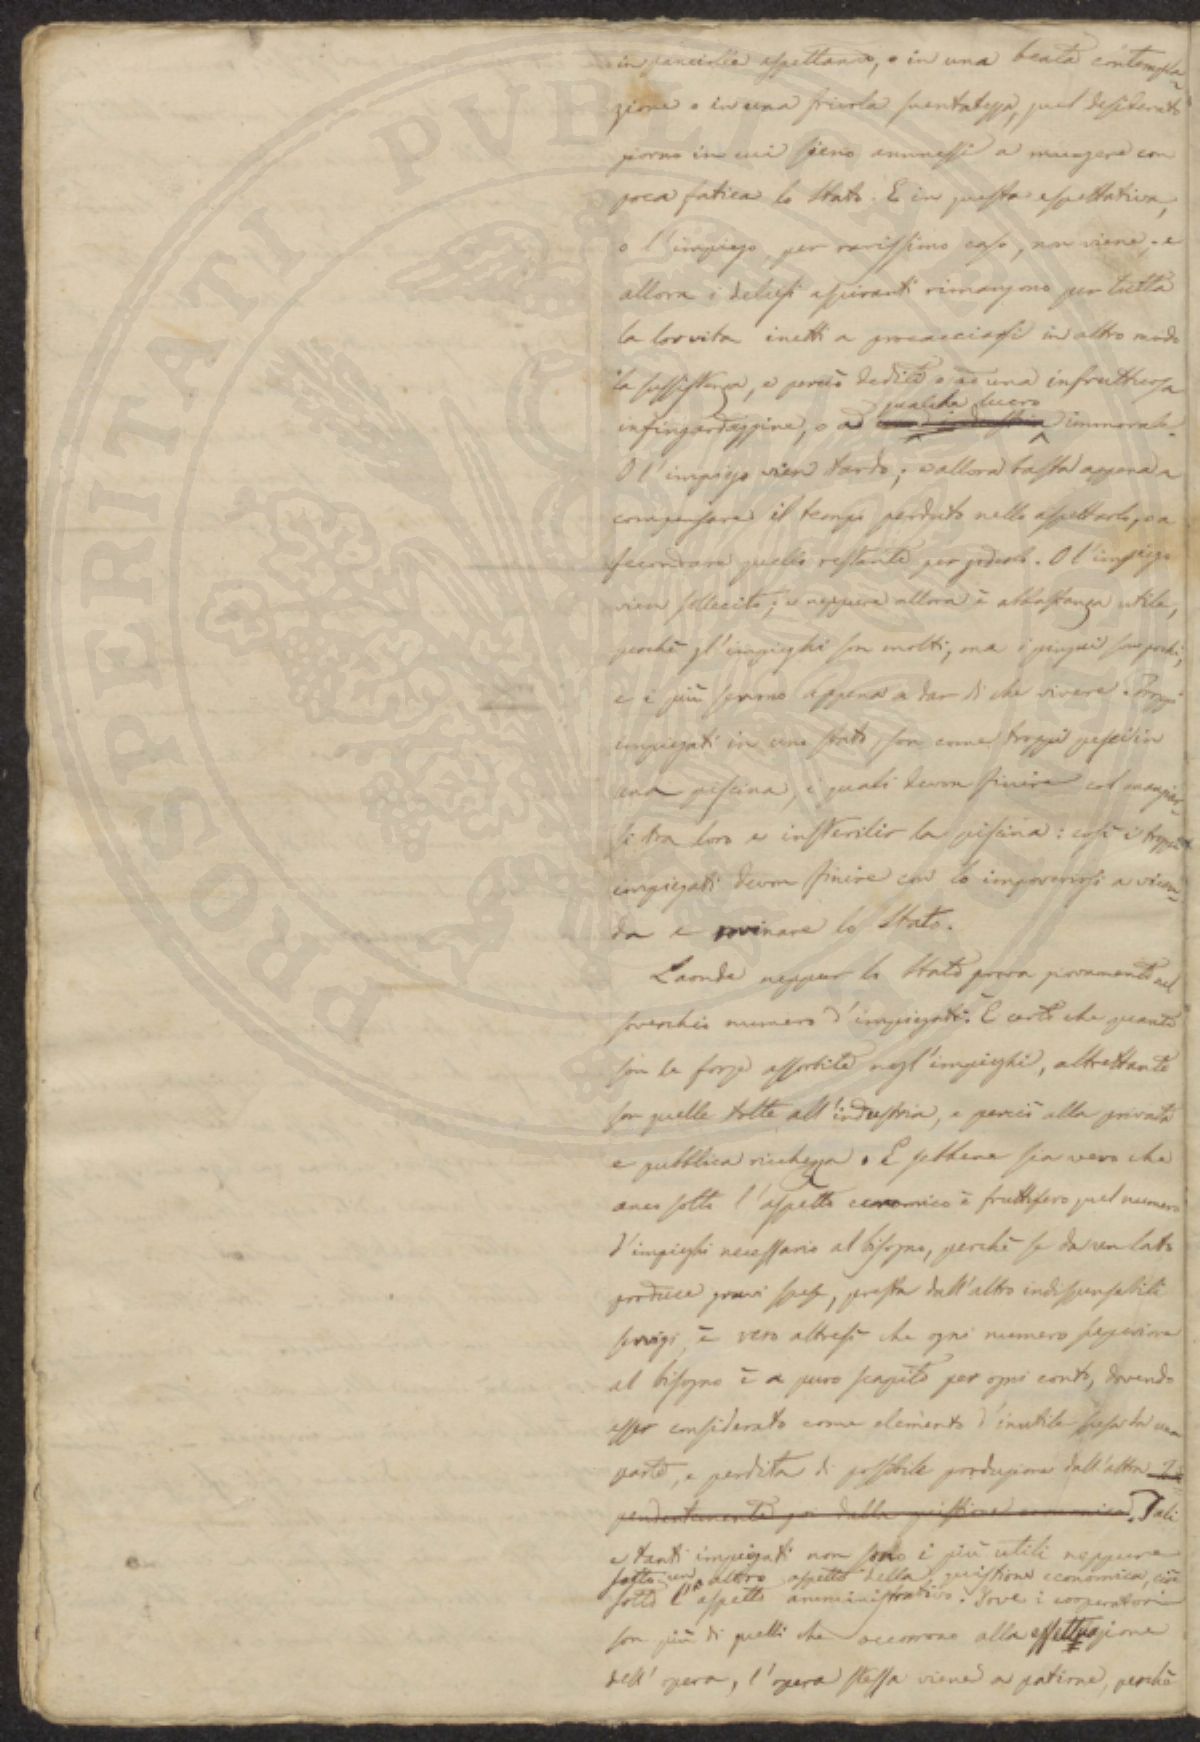 in panciolle aspettando, o in una beata contempla-
zione o in una frivola sventatezza, quel desiderato
giorno in cui sieno ammessi a mungere con
poca fatica lo Stato. E in questa aspettativa,
o l'impiego, per rarissimo caso, non viene; e
allora i delusi aspiranti rimangono per tutta
la lor vita inetti a procacciarsi in altro modo
la sussistenza, e perciò dediti o ad una infruttuosa
qualche lucro
infingardaggine, o ad una industria immorale.
O l'impiego vien tardo; e allora basta appena a
compensare il tempo perduto nello aspettarlo, o a
fecondare quello restante per goderlo. O l'impiego
vien sollecito; e neppure allora è abbastanza utile,
perchè gl'impieghi son molti, ma i pingui son pochi,
e i più servono appena a dar di che vivere. Troppi
impiegati in uno stato, son come troppi pesci in
una piscina, i quali devon finire col mangiar-
si tra loro e insterilir la piscina: così i troppi
impiegati devon finire con lo impoverirsi a vicen-
da e rovinare lo Stato.
Laonde neppur lo Stato prova giovamento nel
soverchio numero d'impiegati. È certo che quante
son le forze assorbite negl'impieghi, altrettante
son quelle tolte all'industria, e perciò alla privata
e pubblica ricchezza. E sebbene sia vero che
anco sotto l'aspetto economico è fruttifero quel numero
d'impieghi necessario al bisogno, perchè se da un lato
produce gravi spese, presta dall'altro indispensabili
servigi, è vero altresì che ogni numero superiore
al bisogno è a puro scapito per ogni conto, dovendo
esser considerato come elemento d'inutile spesa da una
parte, e perdita di possibile produzione dall'altra. Indi-
pendentemente poi dalla quistione economica. Tali
e tanti impiegati non sono i più utili neppure
sotto un altro aspetto della quistione economica, cioè
sotto l'aspetto amministrativo. Dove i cooperatori
son più di quelli che occorrono alla effettuazione
dell'opera, l'opera stessa viene a patirne, perchè
PROSPERITATI PUBLICAE